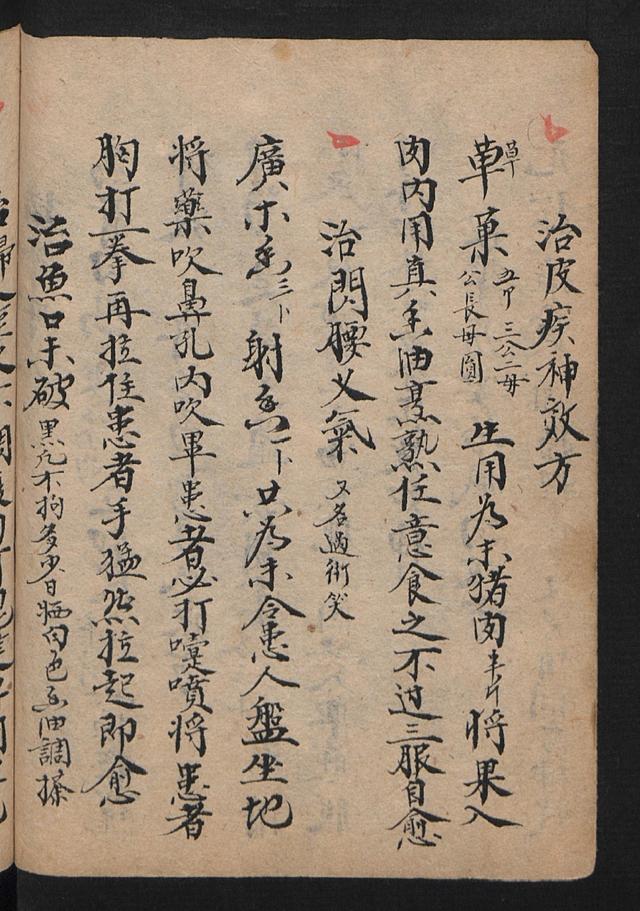 治皮疾神效方
草菓 五个 三公二母 公長母圓 生用為末猪肉半斤將果入
肉內用真香油烹熟任意食之不过三服自愈
治閃腰义氣 又名過街笑
廣木香三卜射香一卜共為末令患人盤坐地
将藥吹鼻孔內吹畢患者必打嚏噴将患者
胸打一拳再拉住患者手猛然拉起即愈
治魚口未破 黑丸不拘多少日晒白色香油調搽